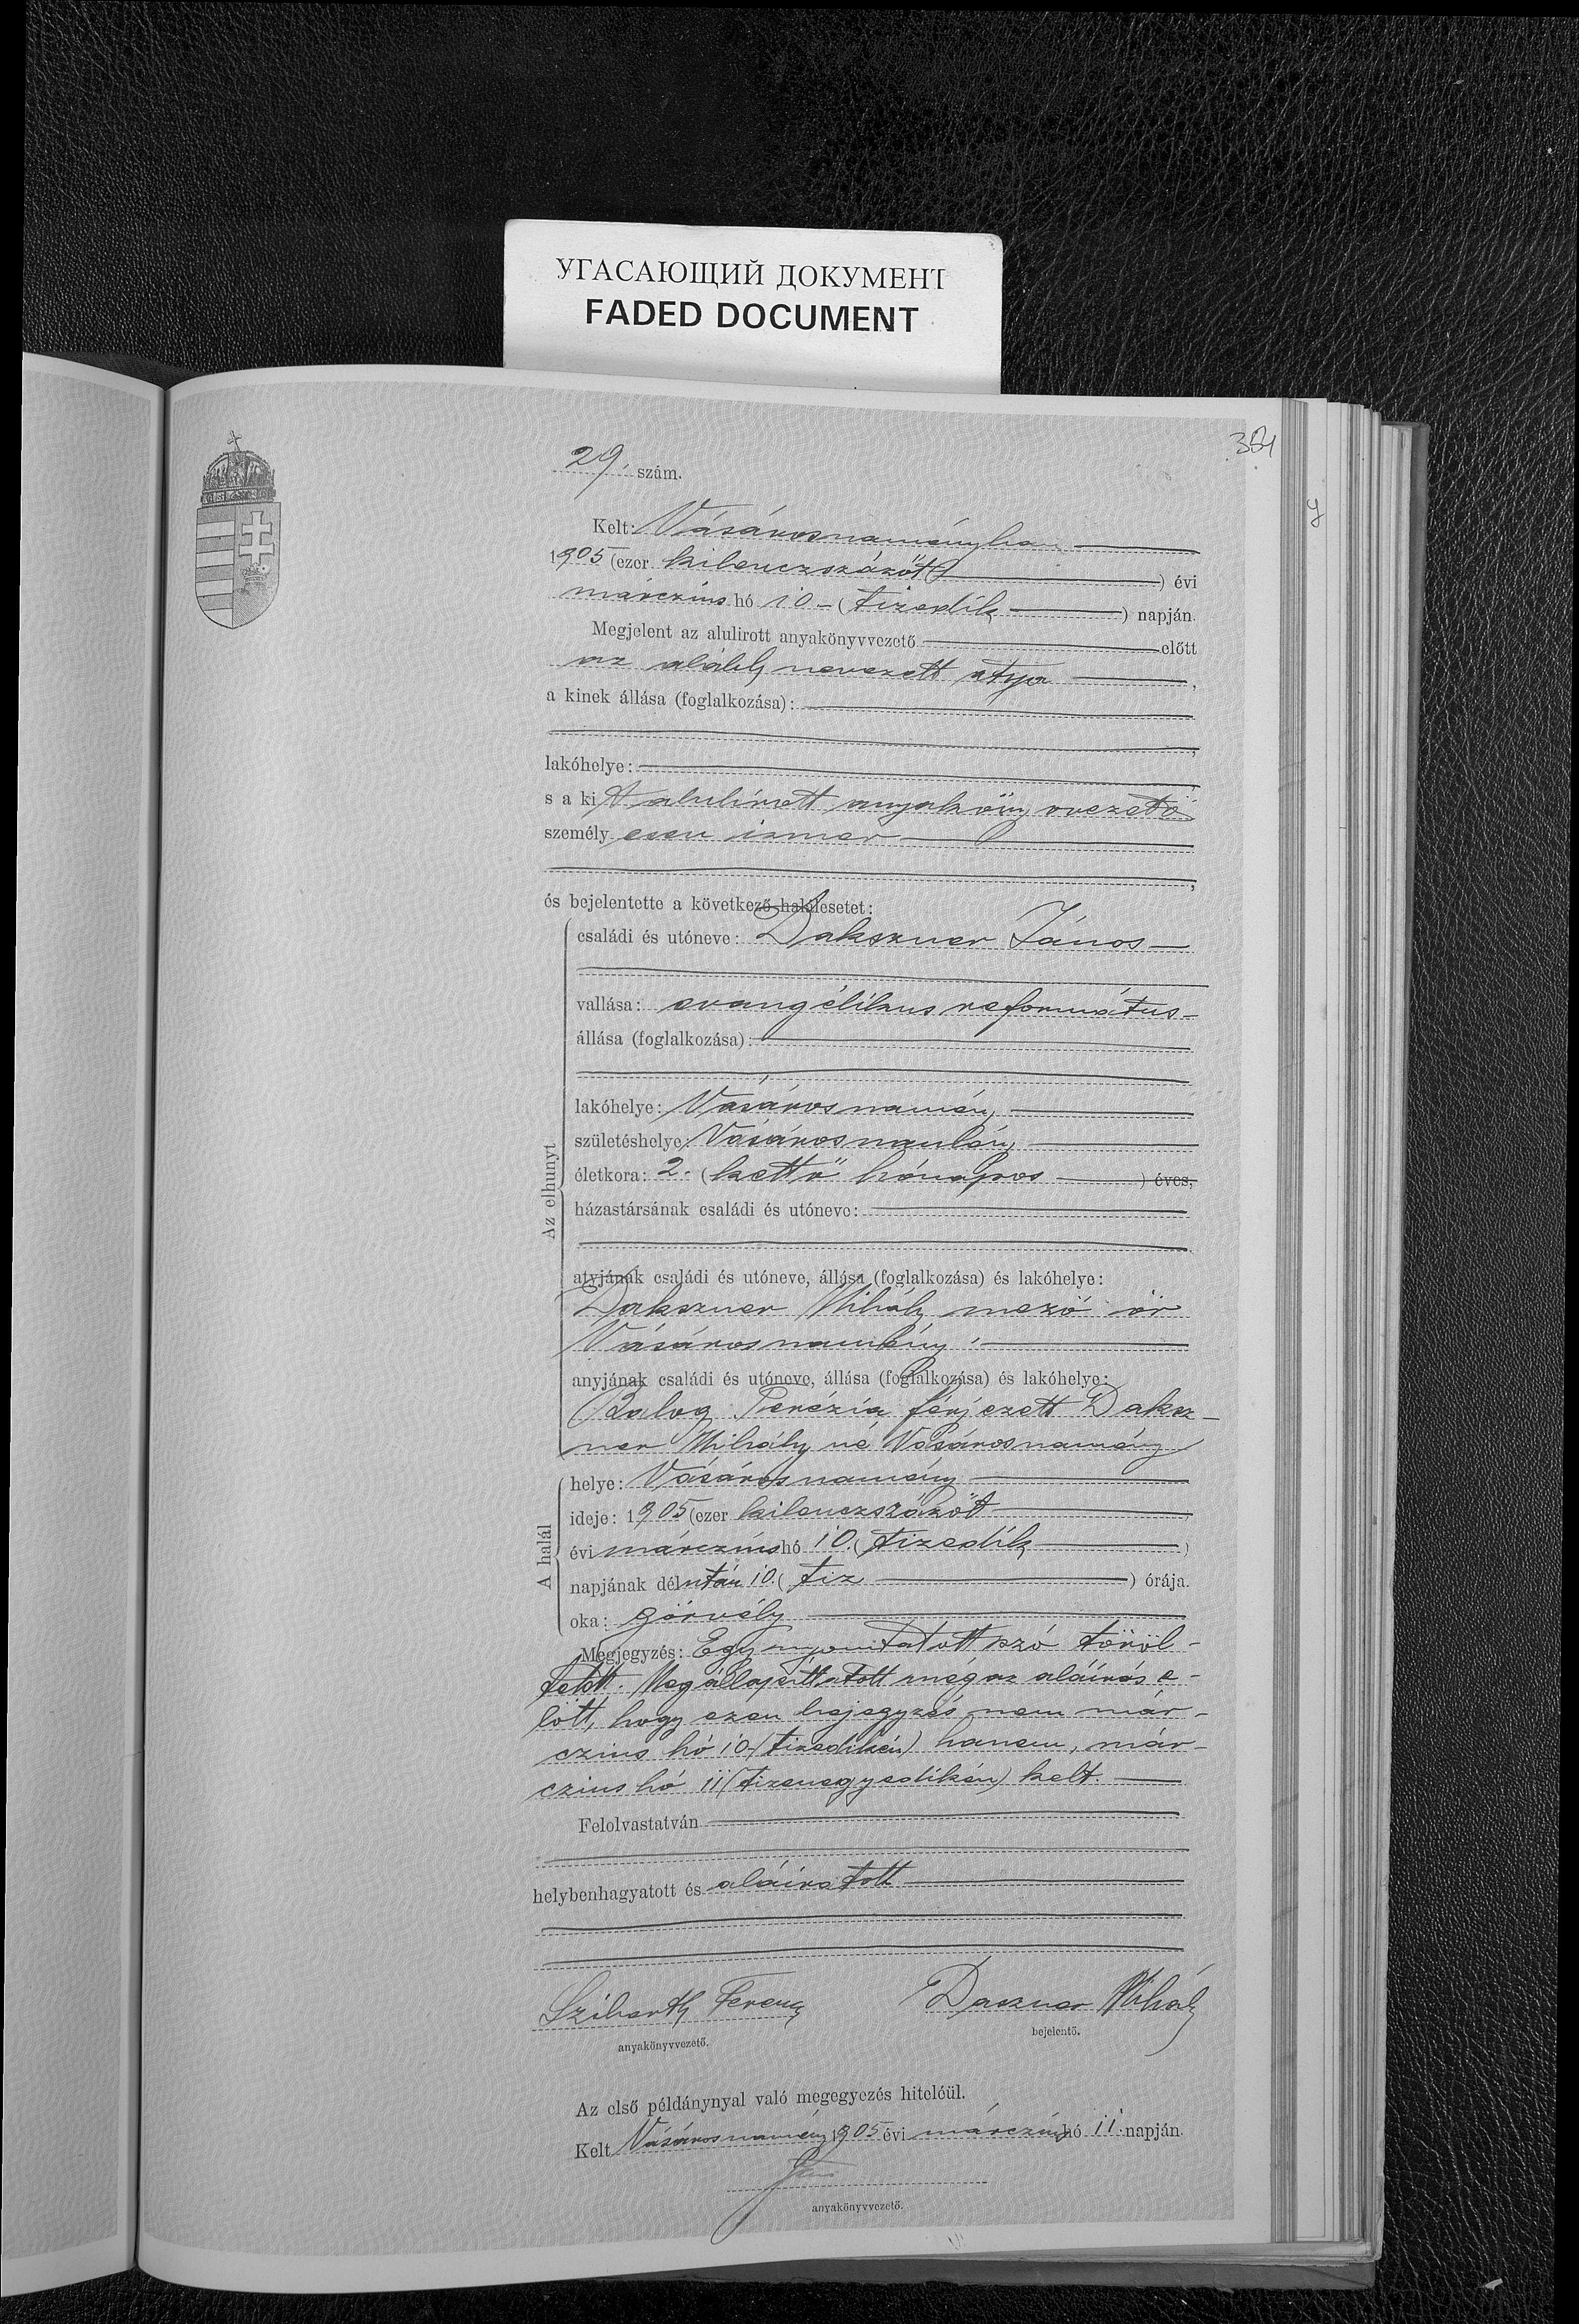 УГАСАЮЩИЙ ДОКУМЕНТ
FADED DOCUMENT
29. szám.
Kelt: Vásárosnaményban
1905 (ezer kilenczszázöt) évi
márczius hó 10 - (tizedik) napján.
Megjelent az alulirott anyakönyvvezető előtt
az alább nevezett atya,
a kinek állása (foglalkozása):
lakóhelye:
s a kit alulírott anyakönyvvezető
személyesen ismer
és bejelentette a következő halálesetet:
Az elhunyt
családi és utóneve: Dakszner János
vallása: evangélikus református
állása (foglalkozása):
lakóhelye: Vásárosnamény
születéshelye: Vásárosnamény
életkora: 2. (kettő hónapos) éves,
házastársának családi és utóneve:
atyjának családi és utóneve, állása (foglalkozása) és lakóhelye:
Dakszner Mihály mező őr
Vásárosnamény
anyjának családi és utóneve, állása (foglalkozása) és lakóhelye:
Balog Terézia férjezett Daksz-
ner Mihály né Vásárosnamény
A halál
helye: Vásárosnamény
ideje: 1905 (ezer kilenczszázöt
évi márczius hó 10. (tizedik)
napjának délután 10. (tiz) órája.
oka: görvély
Megjegyzés: Egy nyomtatott szó töröl-
tetett. Megállapíttatott még az aláírás e-
lőtt, hogy ezen bejegyzés nem már-
czius hó 10 (tizedikén) hanem, már-
czius hó 11 (tizenegyedikén) kelt.
Felolvastatván
helybenhagyatott és aláíratott
Ferencz Daszner Mihály
anyakönyvvezető. bejelentő.
Az első példánynyal való megegyezés hiteléül.
Kelt Vásárosnamény 1905 évi márczius hó 11. napján.
anyakönyvvezető.